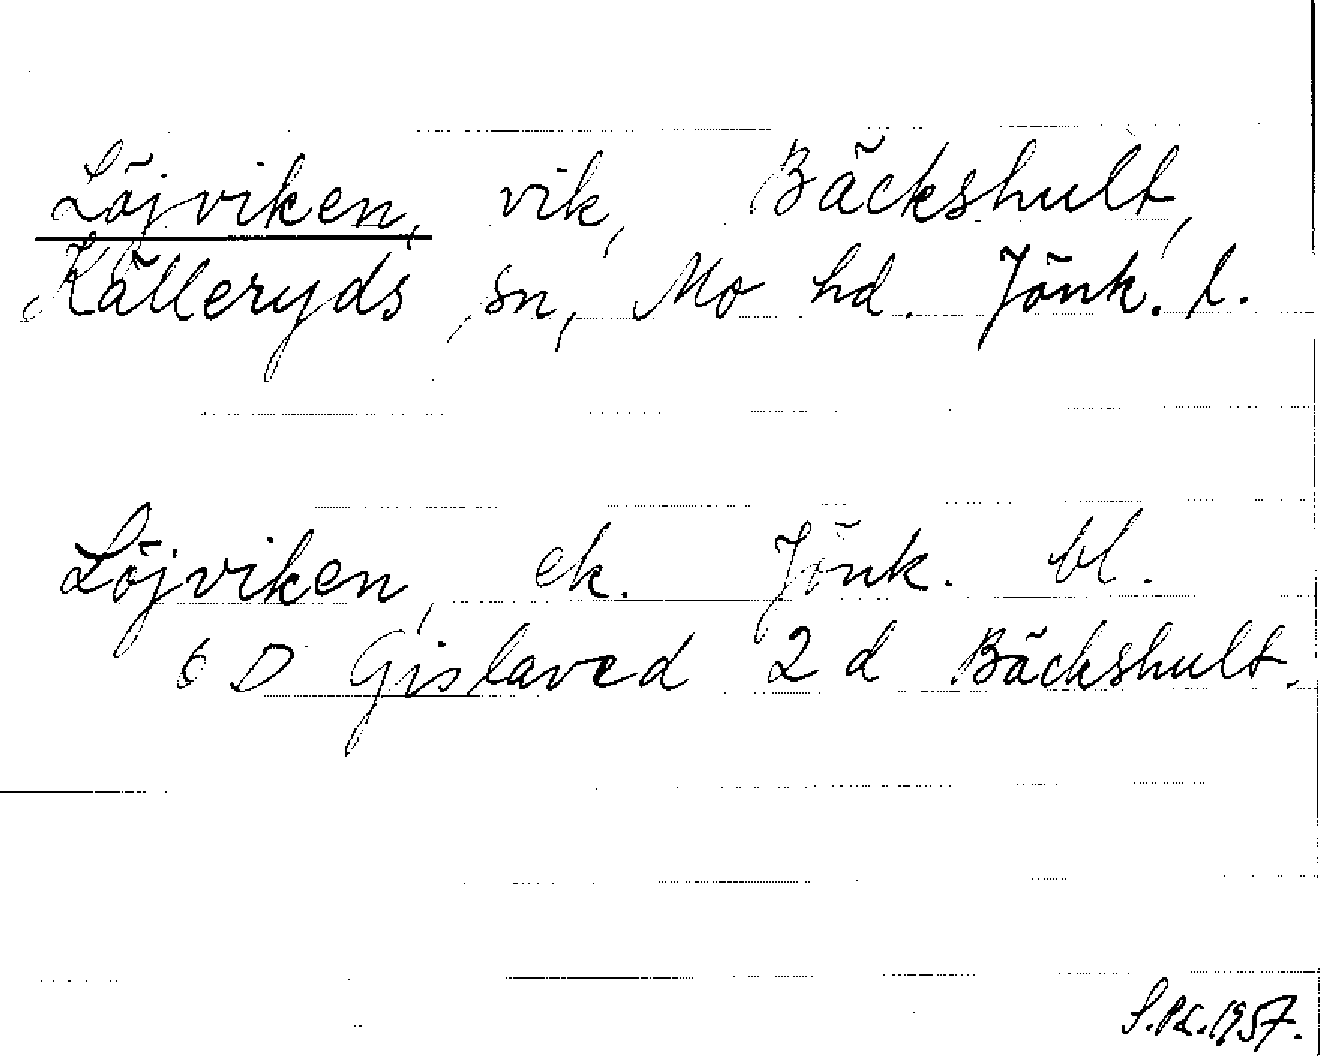 Löjviken, vik, Bäckshult,
Källeryds sn, Mo hd. Jönk. l.
Löjviken, ek. Jönk. bl.
6 D Gislaved 2 d Bäckshult.
1957.